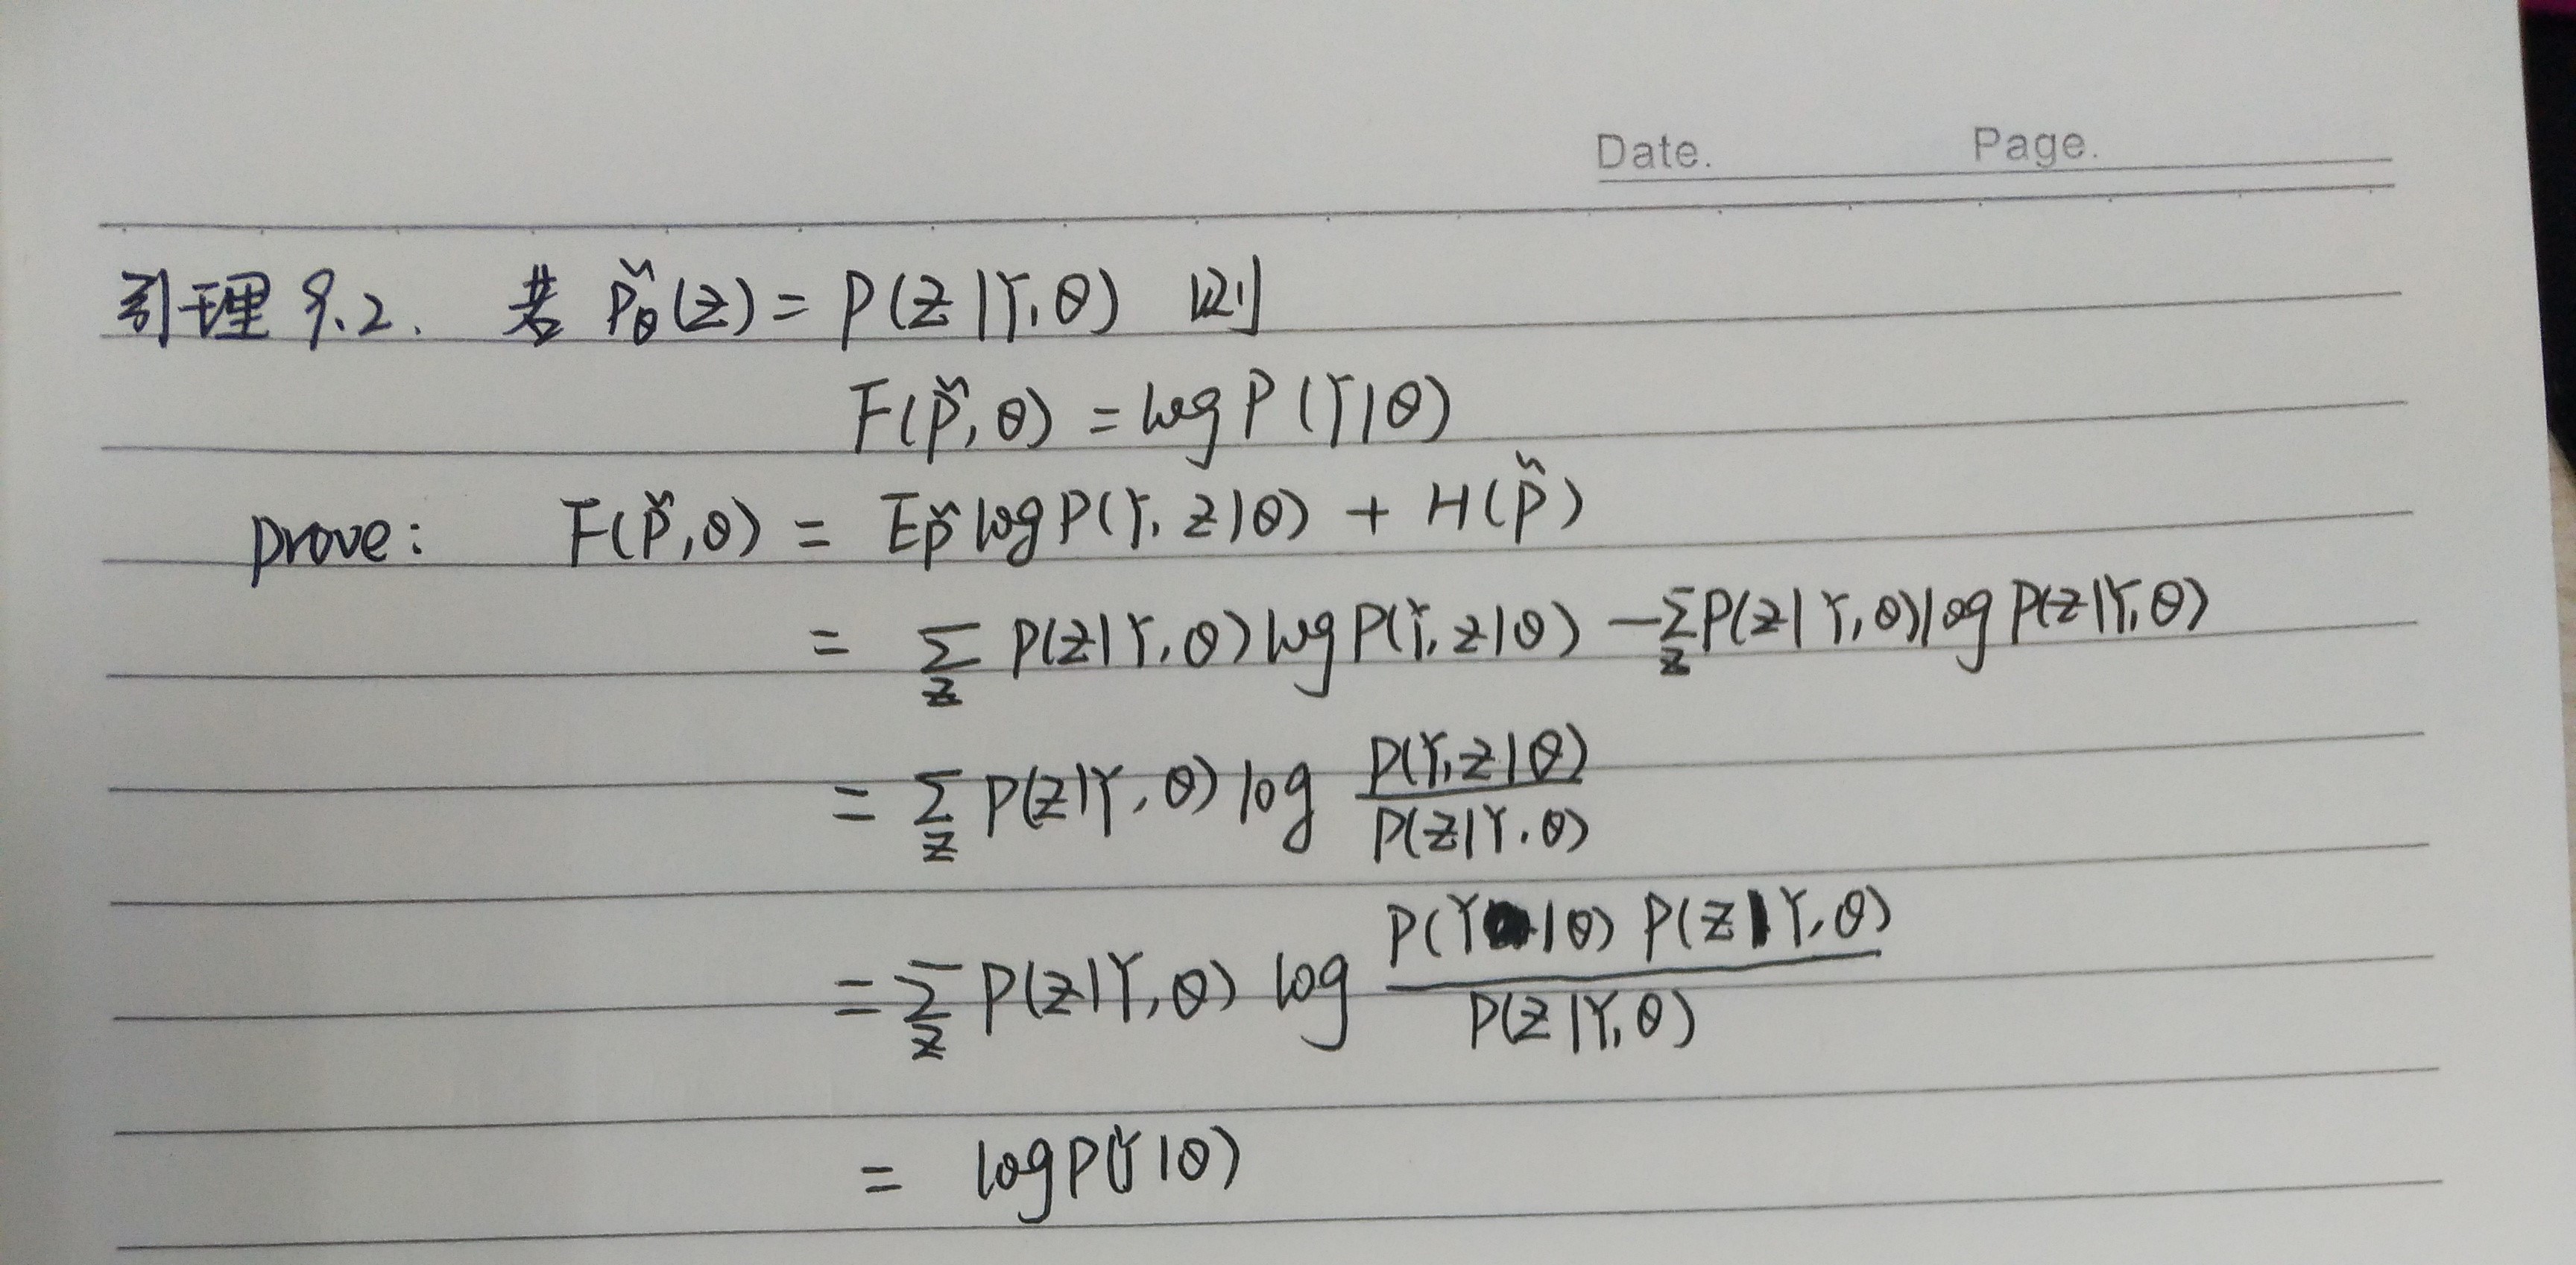 Date. Page.
引理 9.2. 若 P̃θ(Z) = P(Z|Y,θ) 则
F(P̃,θ) = log P(Y|θ)
prove: F(P̃,θ) = E_P̃ log P(Y,Z|θ) + H(P̃)
= Σ_Z P(Z|Y,θ) log P(Y,Z|θ) − Σ_Z P(Z|Y,θ) log P(Z|Y,θ)
= Σ_Z P(Z|Y,θ) log P(Y,Z|θ) / P(Z|Y,θ)
= Σ_Z P(Z|Y,θ) log P(Y|θ) P(Z|Y,θ) / P(Z|Y,θ)
= log P(Y|θ)